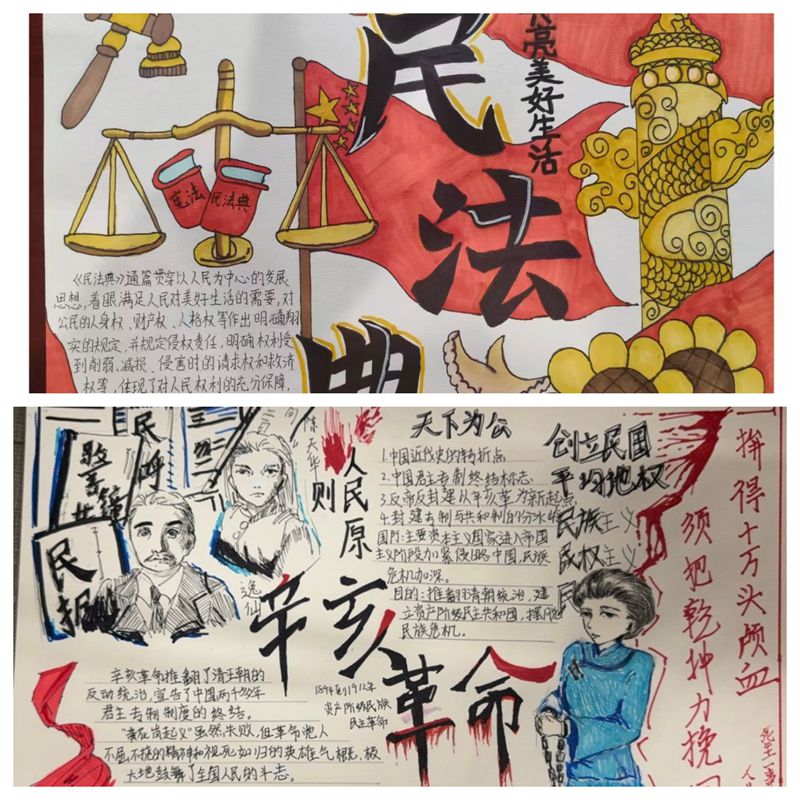 民法典
亮美好生活
宪法
民法典
《民法典》通篇贯穿以人民为中心的发展
思想，着眼满足人民对美好生活的需要，对
公民的人身权、财产权、人格权等作出明确翔
实的规定，并规定侵权责任，明确权利受
到削弱、减损、侵害时的请求权和救济
权等，体现了对人民权利的充分保障。
民呼
警世钟
民报
陈天华
逸仙
人民原则
辛亥革命
天下为公
1.中国近代史的转折点
2.中国君主专制终结标志
3.反帝反封建从辛亥革为新起点
4.封建专制与共和制的分水岭
国际:主要资本主义国家进入帝国
主义阶段加紧侵略中国,民族
危机加深。
目的:推翻清朝统治,建
立资产阶级民主共和国,摆脱
民族危机。
创立民国
平均地权
民族主义
民权主义
民
拚得十万头颅血
须把乾坤力挽
辛亥革命推翻了清王朝的
反动统治,宣告了中国两千多年
君主专制制度的终结。
"黄花岗起义"虽然失败,但革命党人
不屈不挠的精神和视死如归的英雄气概,极
大地鼓舞了全国人民的斗志。
1894年到1912年
资产阶级民族
民主革命